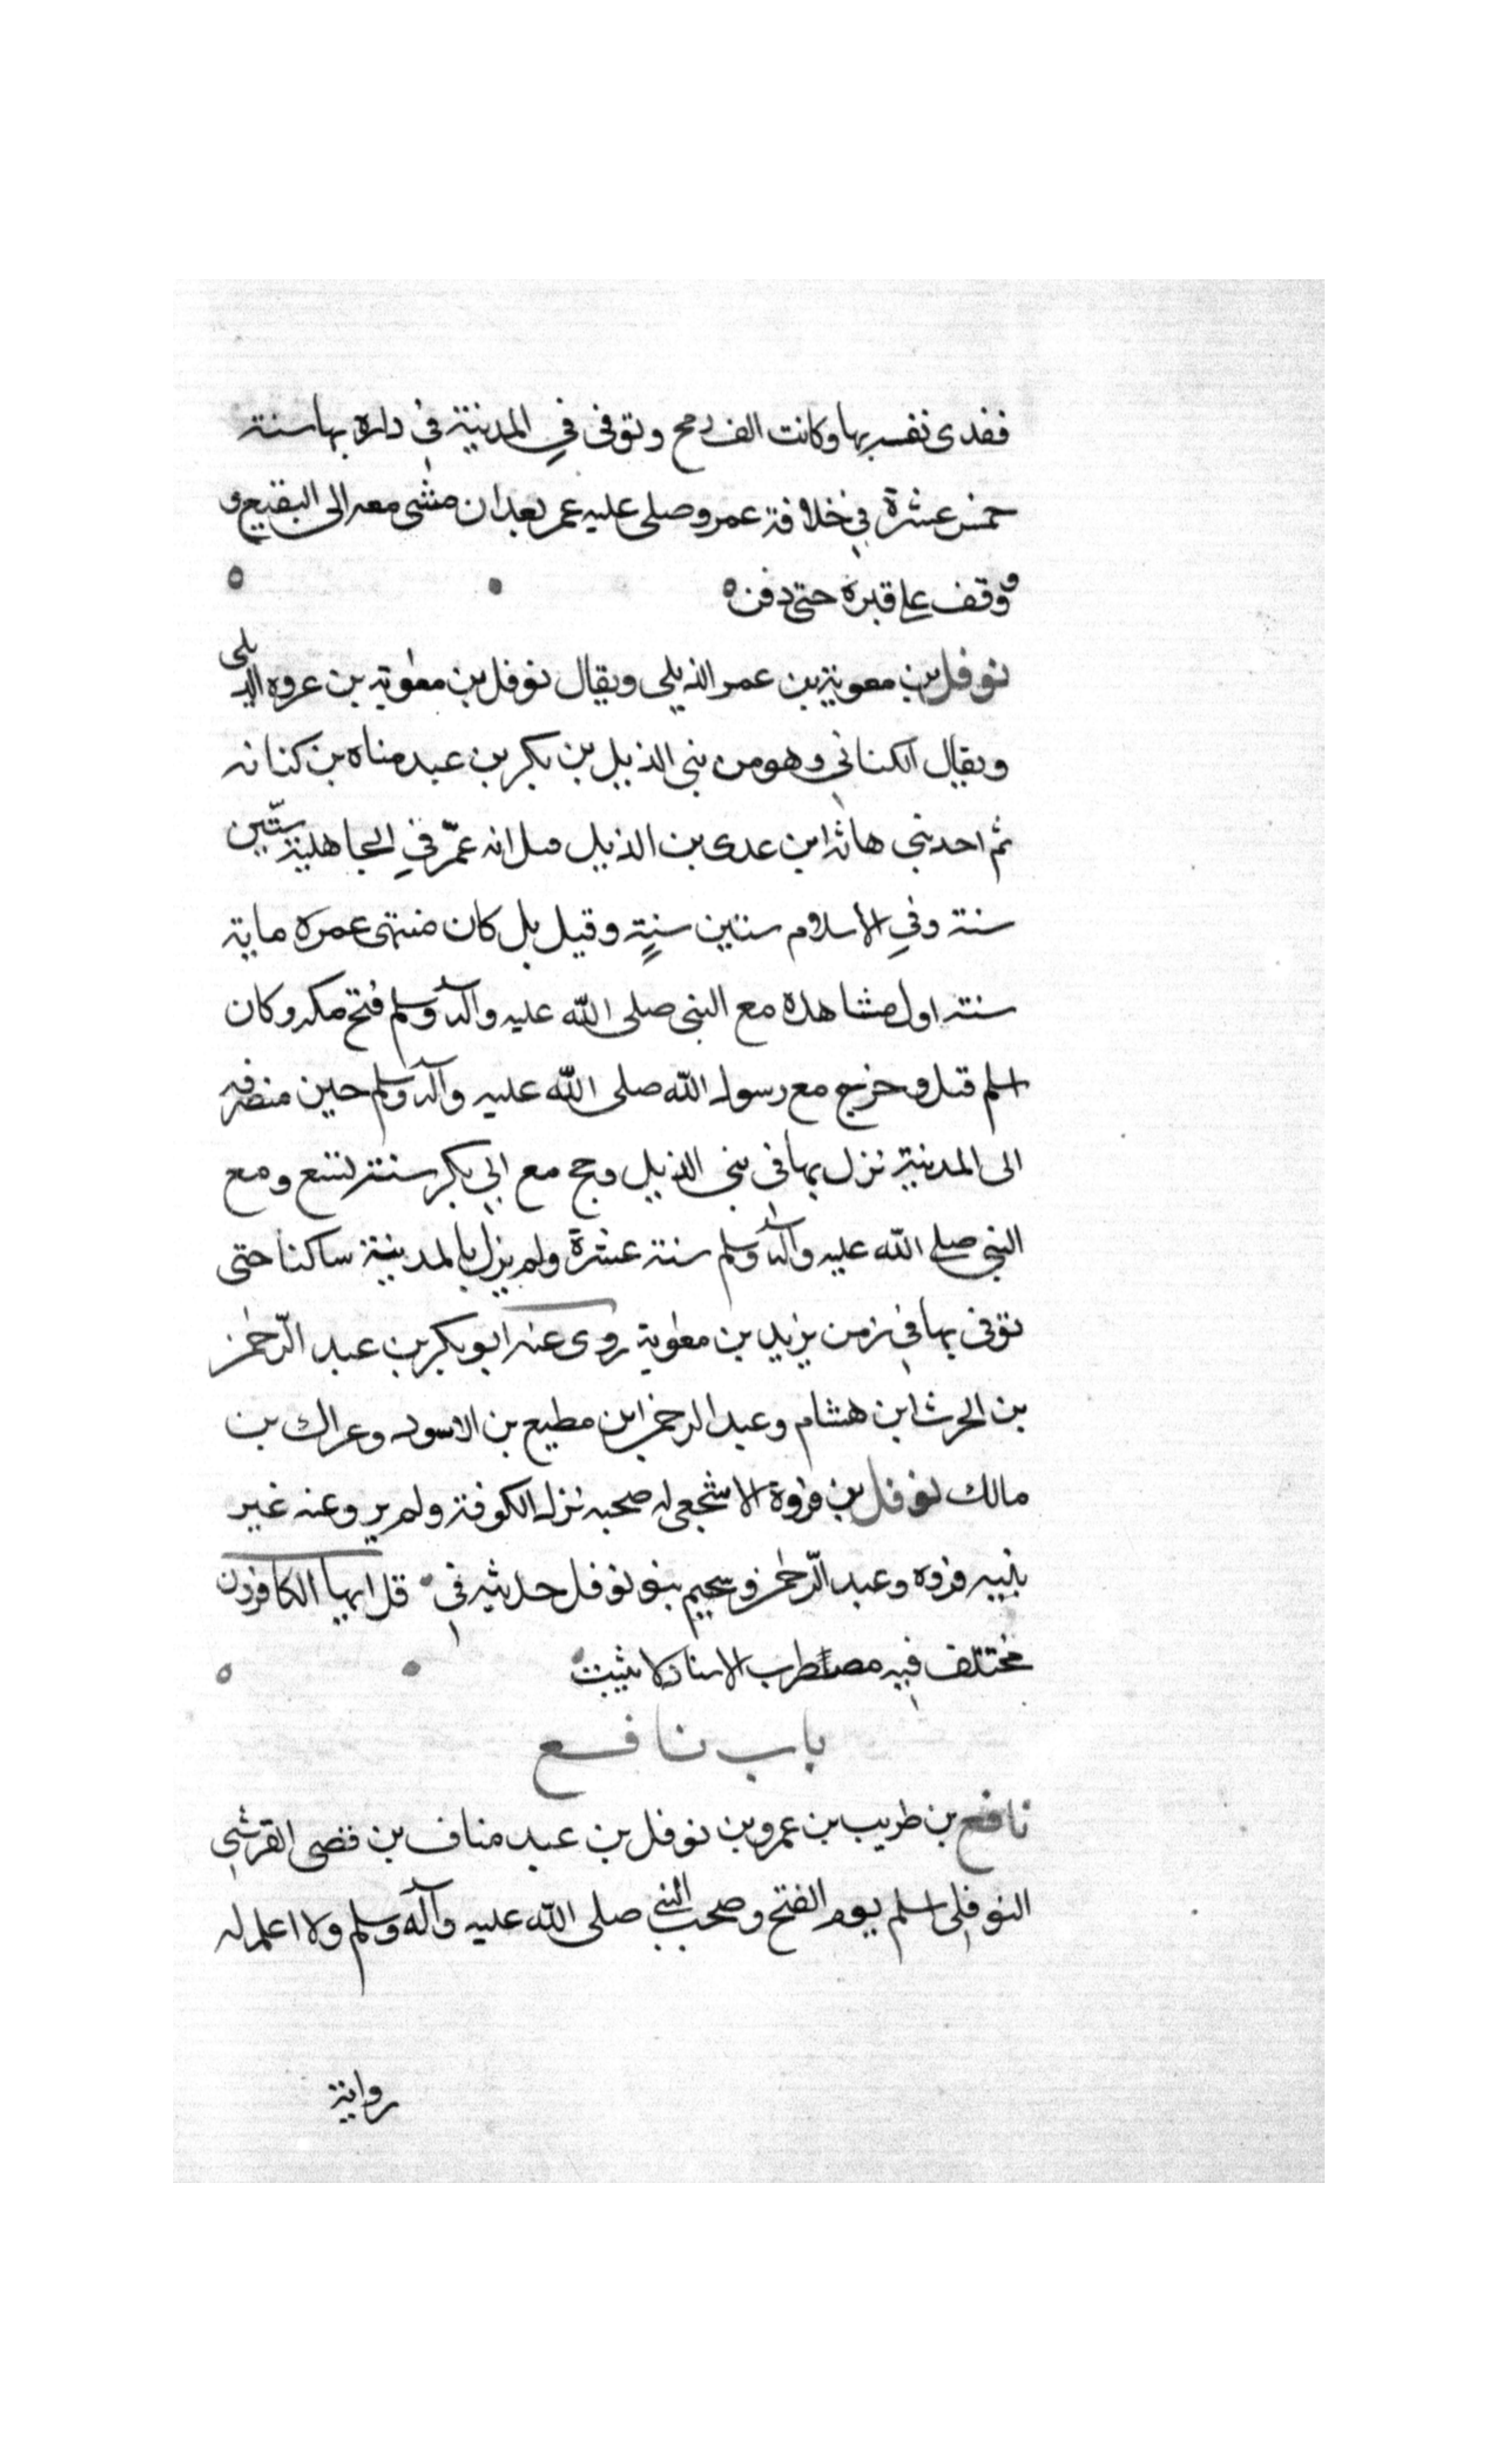 ففدى نفسه بها وكانت الف رمح وتوفى في المدينة في داره بها سنة
خمس عشرة في خلافة عمر وصلى عليه عمر بعد ان مشى معه الى البقيع و
ووقف على قبره حتى دفن
نوفل بن معوية بن عمر الذيلي ويقال نوفل بن معوية بن عروه الديلى
ويقال الكناني وهو من بني الذيل بن بكر بن عبد مناه بن كنانه
ثم احد بني هاثه ابن عدى بن الذيل قيل انه عمّر في الجاهلية ستّين
سنة وفي الاسلام ستين سنة وقيل بل كان منتهى عمره ماية
سنة اول مشاهده مع النبي صلى الله عليه وآله وسلم فتح مكه وكان
اسلم قبل وخرج مع رسول الله صلى الله عليه وآله وسلم حين منصرفه
الى المدينة نزل بها في بني الذيل وحج مع ابي بكر سنة تسع ومع
النبي صلى الله عليه وآله وسلم سنة عشرة ولم يزل بالمدينة ساكنا حتى
توفى بها في زمن يزيد بن معوية روى عنه ابو بكر بن عبد الرّحمن
بن الحرث ابن هشام وعبد الرحمن ابن مطيع بن الاسود وعراك بن
مالك نوفل بن فروة الاشجعى له صحبه نزل الكوفة ولم يرو عنه غير
بنيه فروه وعبد الرّحمن وسحيم بنو نوفل حديثه في قل ايها الكافرون
مختلف فيه مضطرب الاسناد لا يثبت
باب نافع
نافع بن طريب بن عمرو بن نوفل بن عبد مناف بن قصى القرشي
النوفلي اسلم يوم الفتح وصحب النبي صلى الله عليه وآله وسلم ولا اعلم له
رواية